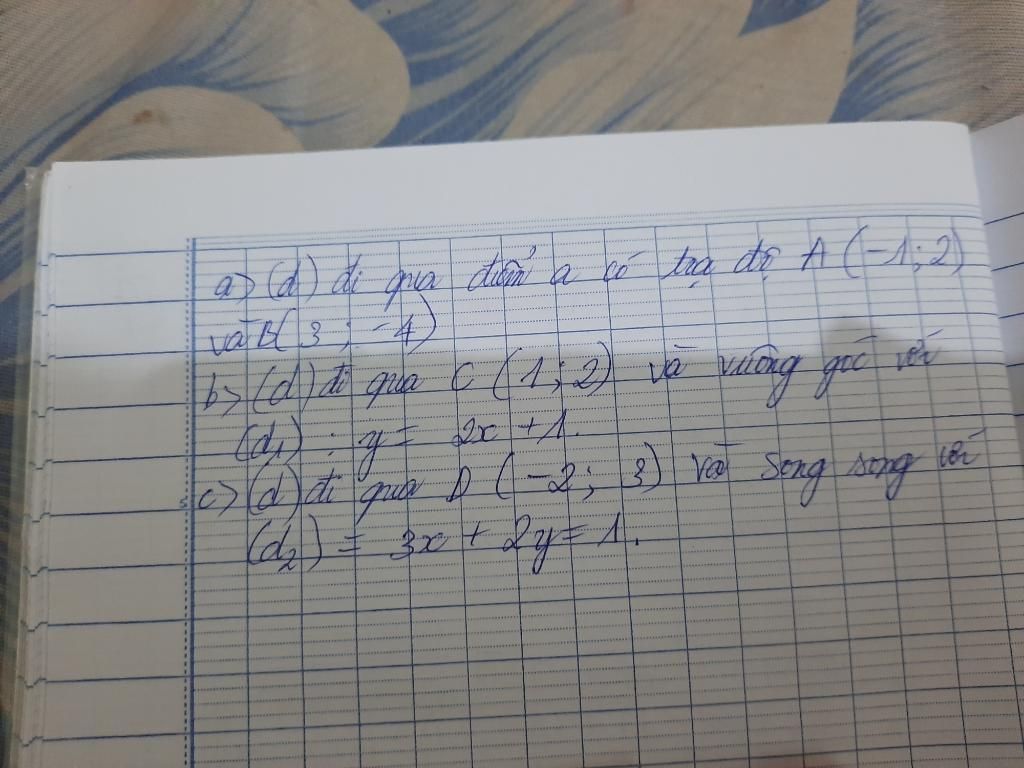 a> (d) đi qua điểm a có tọa độ A (-1; 2)
và B( 3 ; -4)
b> (d) đi qua C (1; 2) và vuông góc với
(d₁) : y = 2x + 1.
c> (d) đi qua D (-2; 3) và song song với
(d₂) = 3x + 2y = 1.